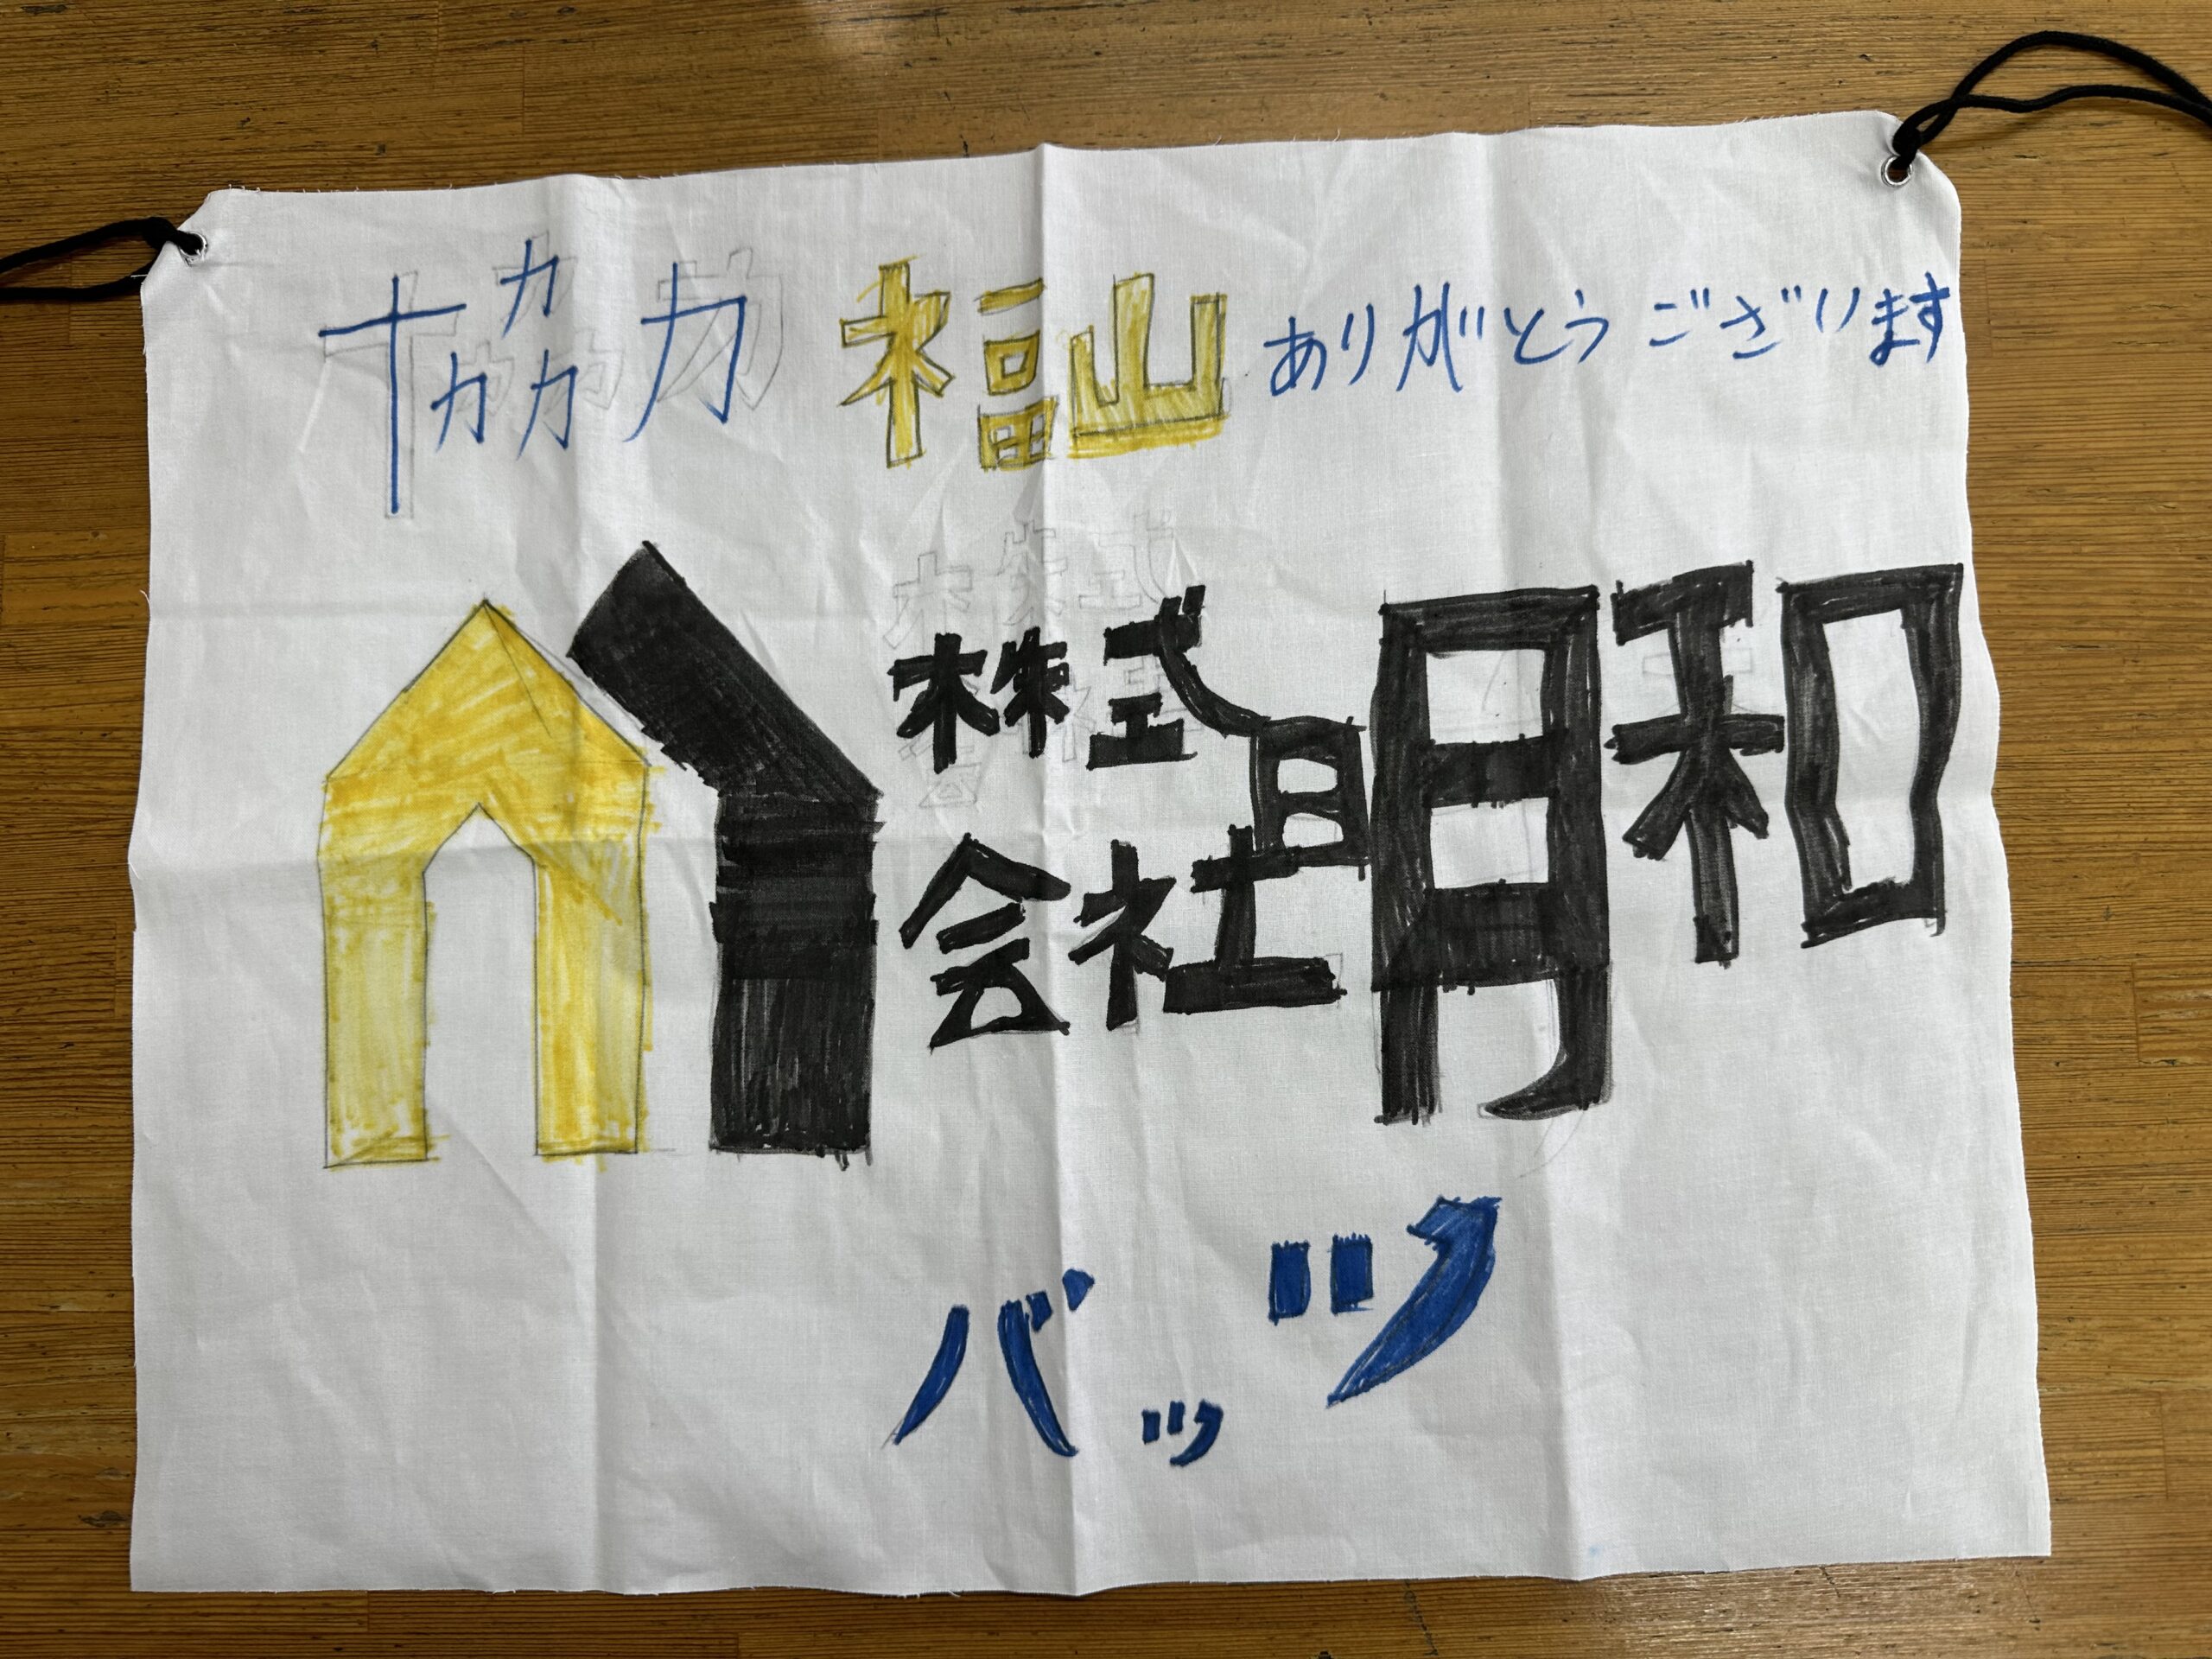 協力 福山 ありがとうございます
株式
会社
明和
バッツ